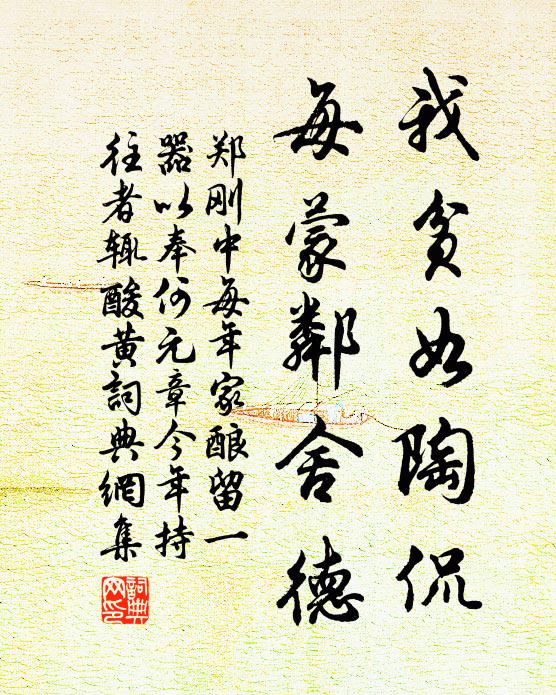 我贫如陶侃
每蒙鄰舍德
郑刚中每年家酿留一
器以奉何元章今年持
往者辄酸黄詞典網集
詞典
网印